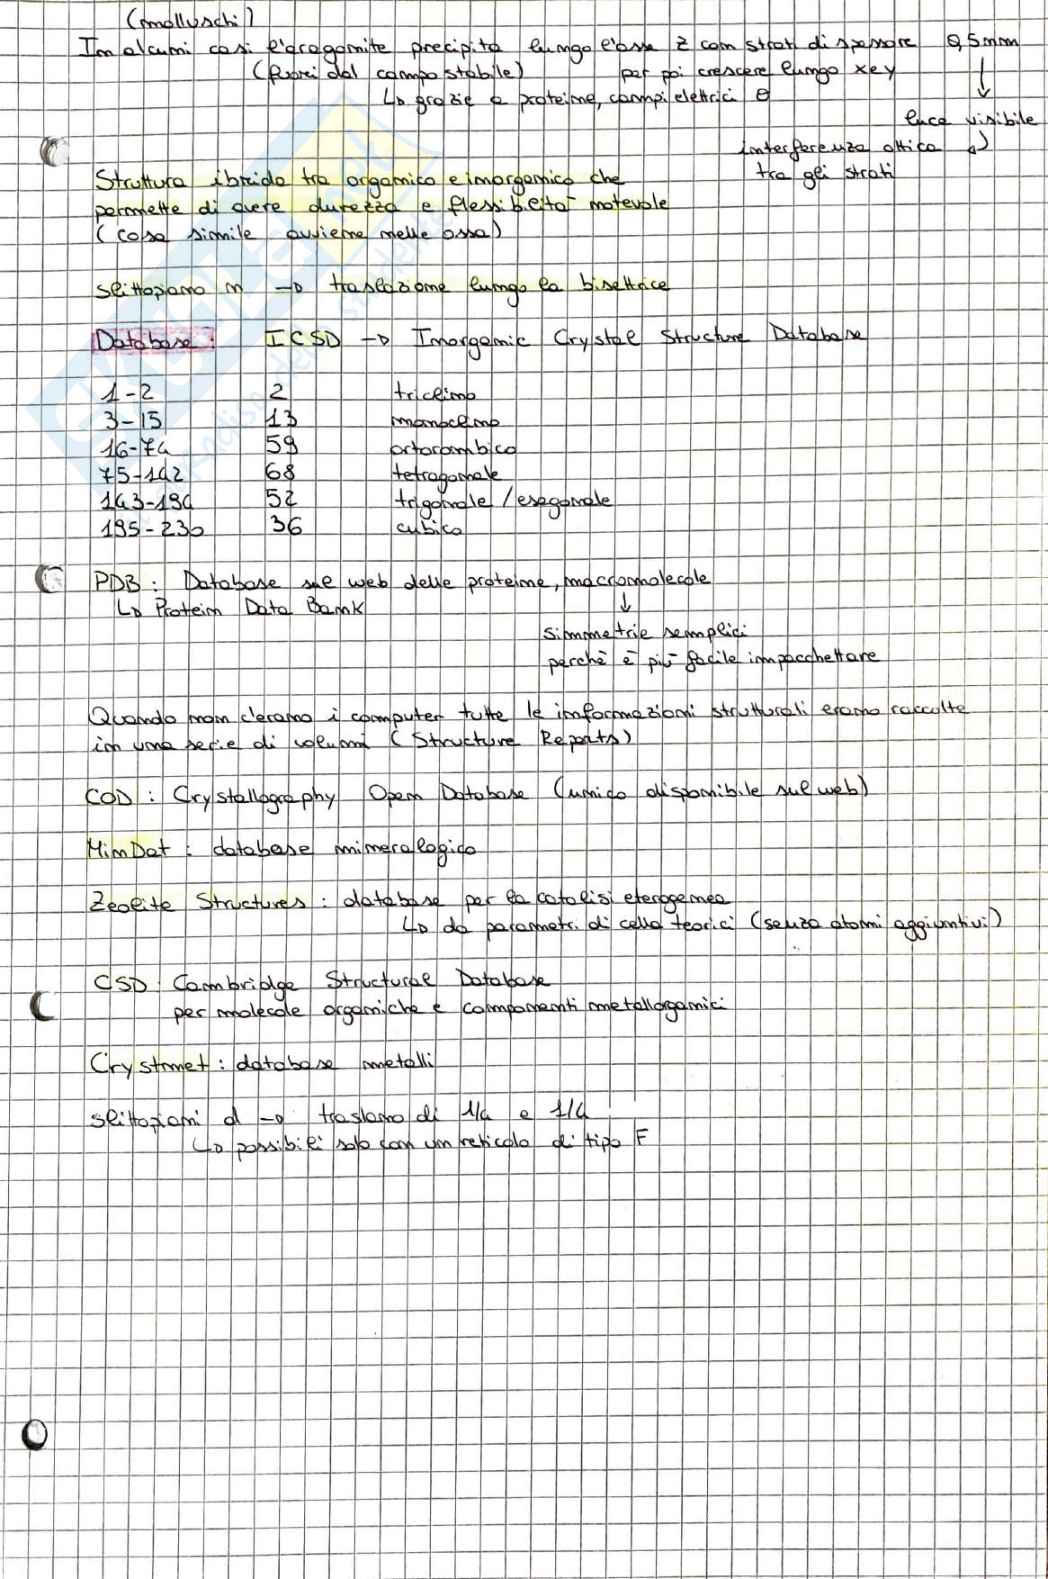 (molluschi)
In alcuni casi l'aragonite precipita lungo l'asse z con strati di spessore 0,5mm
(fuori dal campo stabile) per poi crescere lungo x e y
↳ grazie a proteine, campi elettrici e
luce visibile
interferenza ottica
tra gli strati
Struttura ibrida tra organico e inorganico che
permette di avere durezza e flessibilità notevole
(cosa simile avviene nelle ossa)
slittopiano n → traslazione lungo la bisettrice
Database: ICSD → Inorganic Crystal Structure Database
1-2 2 triclino
3-15 13 monoclino
16-74 59 ortorombico
75-142 68 tetragonale
143-194 52 trigonale/esagonale
195-230 36 cubico
PDB: Database sul web delle proteine, macromolecole
↳ Protein Data Bank ↓
simmetrie semplici
perchè è più facile impacchettare
Quando non c'erano i computer tutte le informazioni strutturali erano raccolte
in una serie di volumi (Structure Reports)
COD: Crystallography Open Database (unico disponibile sul web)
MinDat: database mineralogico
Zeolite Structures: database per la catalisi eterogenea
↳ da parametri di cella teorici (senza atomi aggiuntivi)
CSD: Cambridge Structural Database
per molecole organiche e componenti metallorganici
Crystmet: database metalli
slittopiani d → traslano di 1/4 e 1/4
↳ possibili solo con un reticolo di tipo F